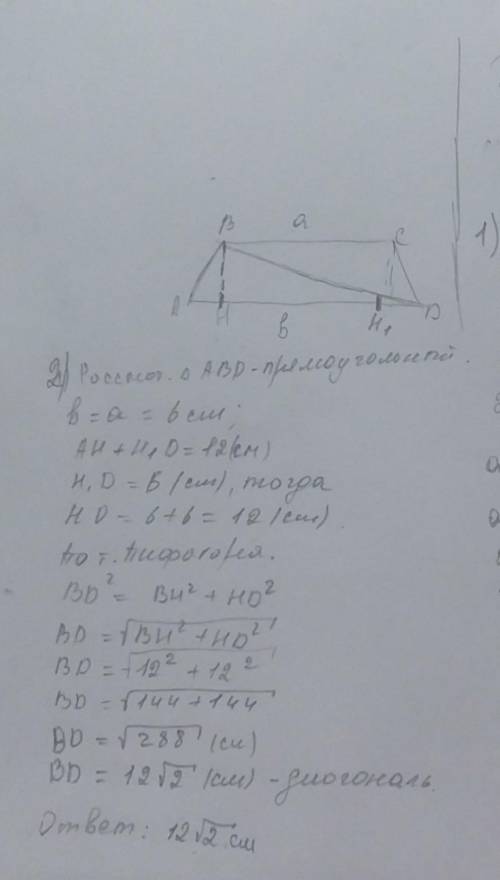 B a C
1)
A H b H₁ D
2) Рассмот. △ ABD - прямоугольный.
b = a = 6 см;
AH + H₁D = 12 (см)
H₁D = 6 (см), тогда
HD = 6 + 6 = 12 (см)
По т. Пифагора.
BD² = BH² + HD²
BD = √BH² + HD²
BD = √12² + 12²
BD = √144 + 144
BD = √288 (см)
BD = 12√2 (см) - диогональ.
Ответ: 12√2 см